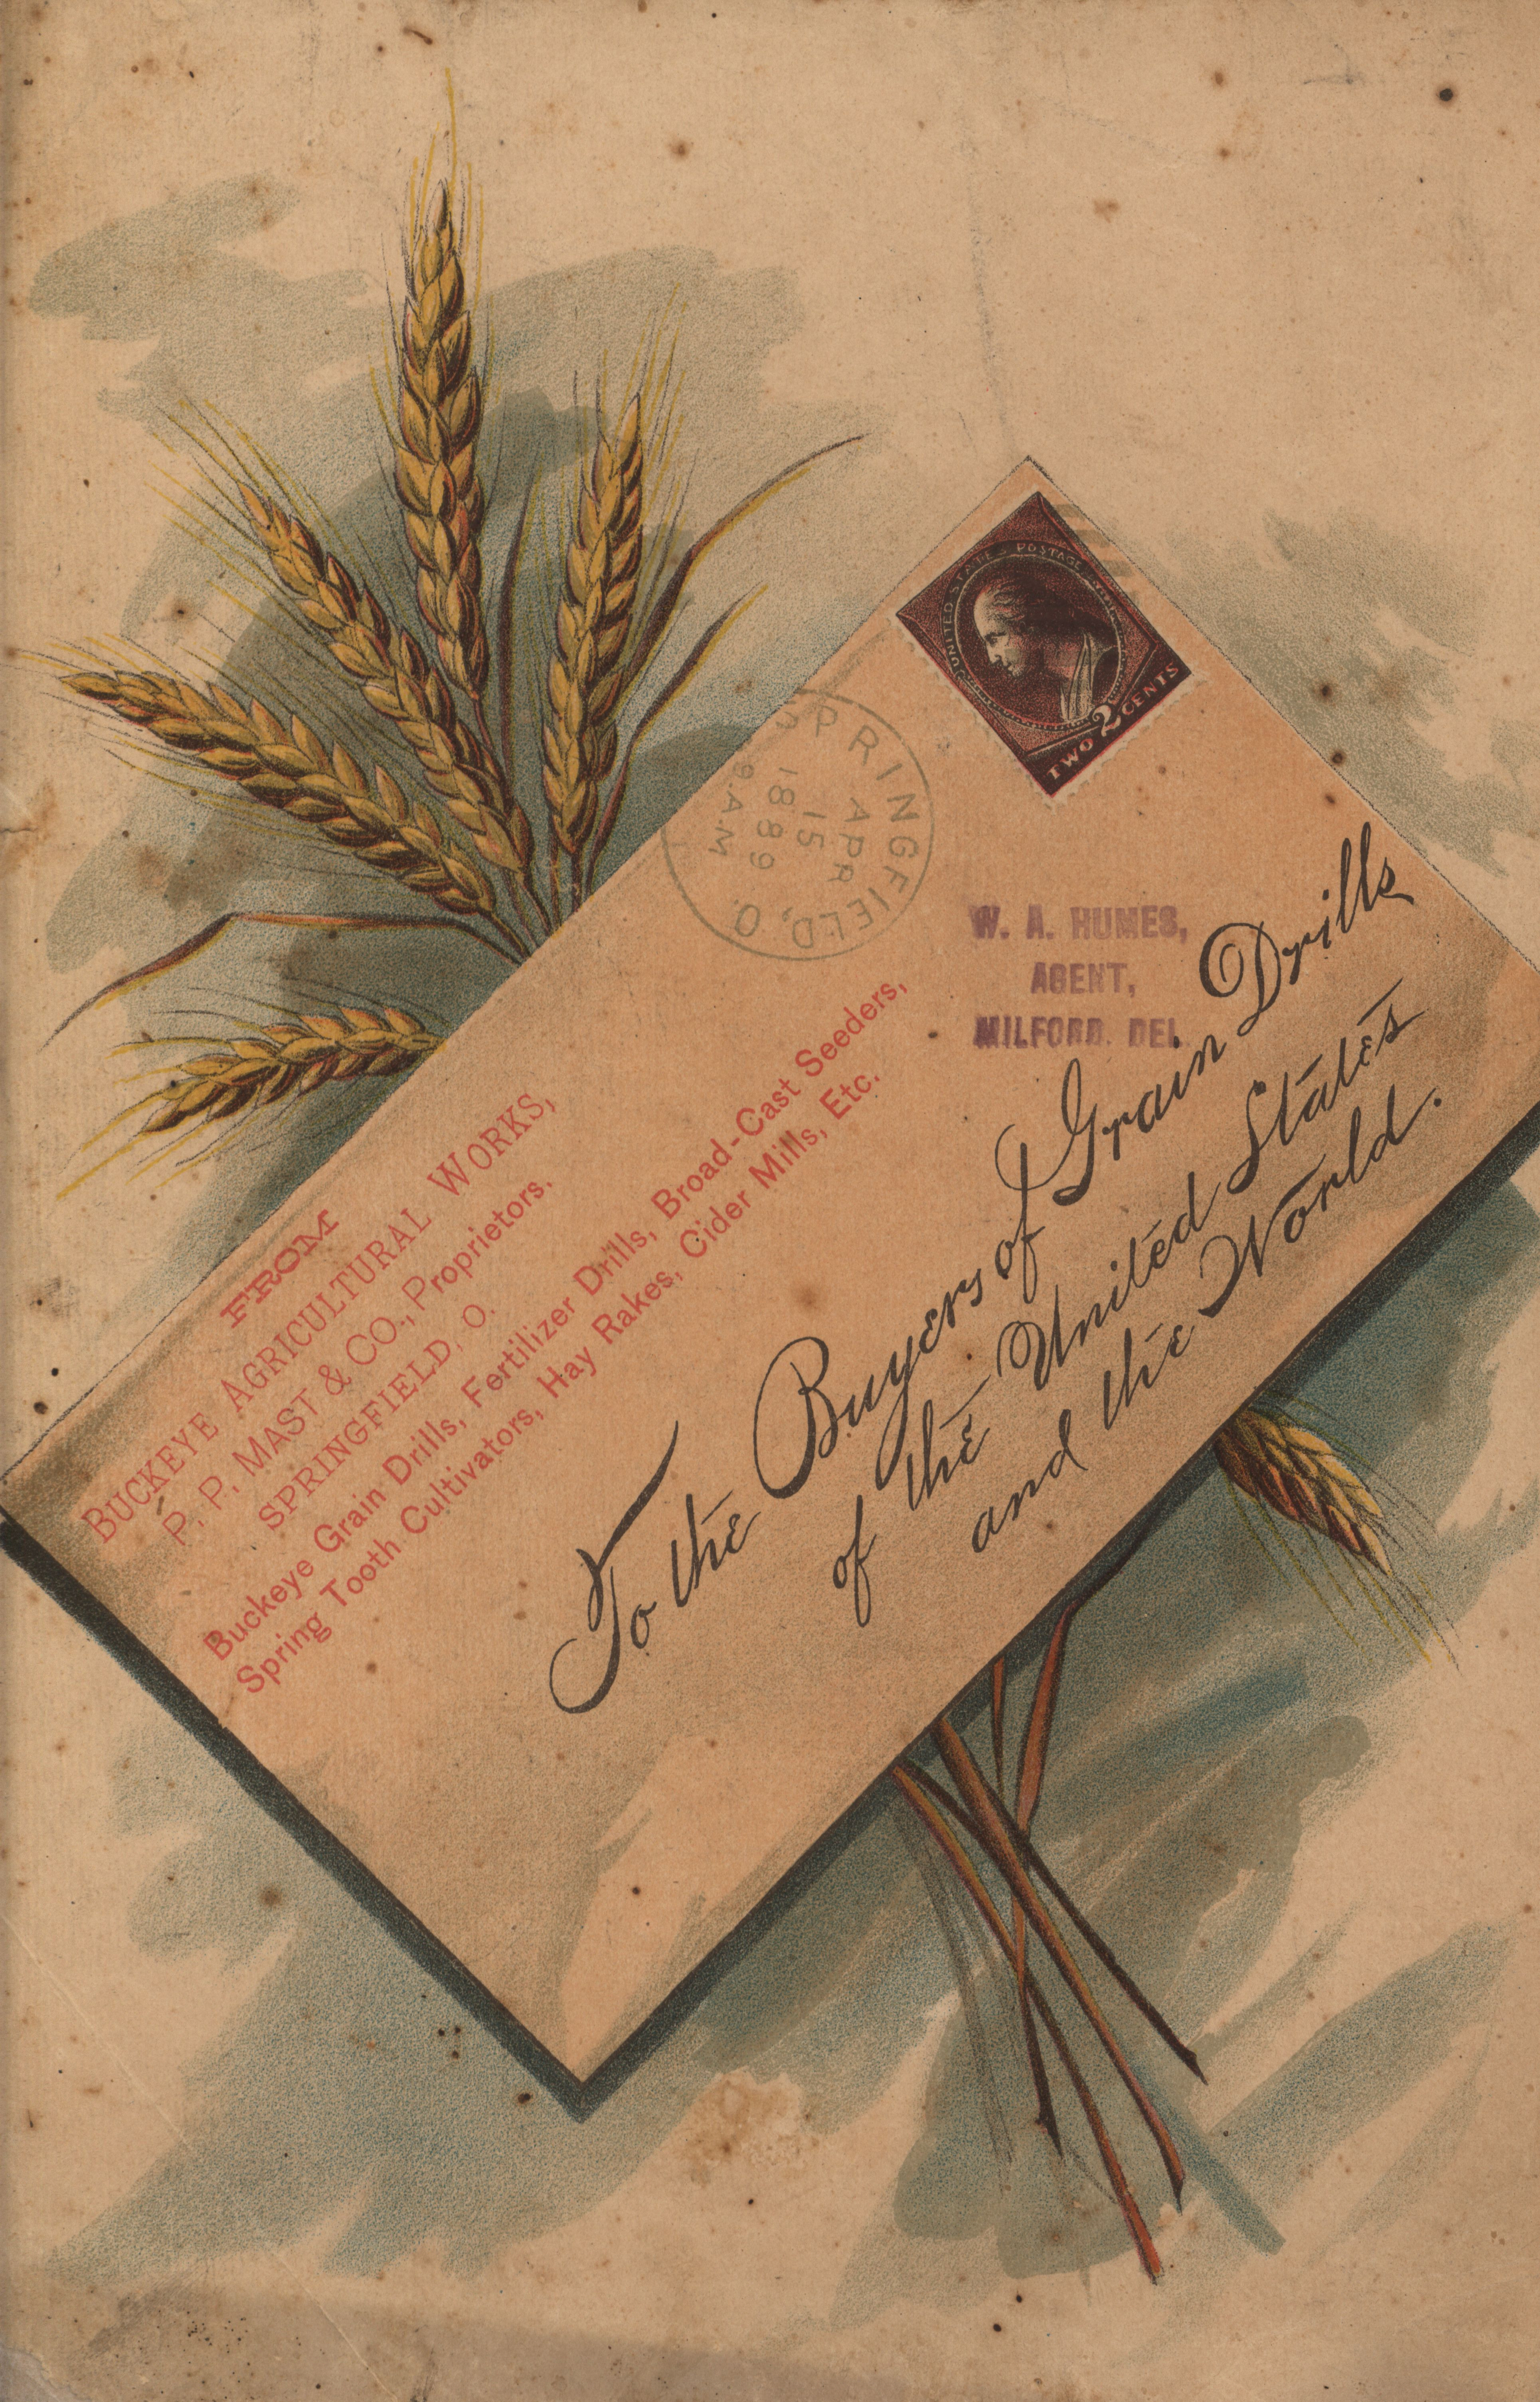 UNITED STATES POSTAGE
TWO 2 CENTS
SPRINGFIELD, O.
APR
15
1889
9 A.M
W. A. HUMES,
AGENT,
MILFORD. DEL
FROM
BUCKEYE AGRICULTURAL WORKS,
P. P. MAST & CO., Proprietors.
SPRINGFIELD, O.
Buckeye Grain Drills, Fertilizer Drills, Broad-Cast Seeders,
Spring Tooth Cultivators, Hay Rakes, Cider Mills, Etc.
To the Buyers of Grain Drills
of the United States
and the World.